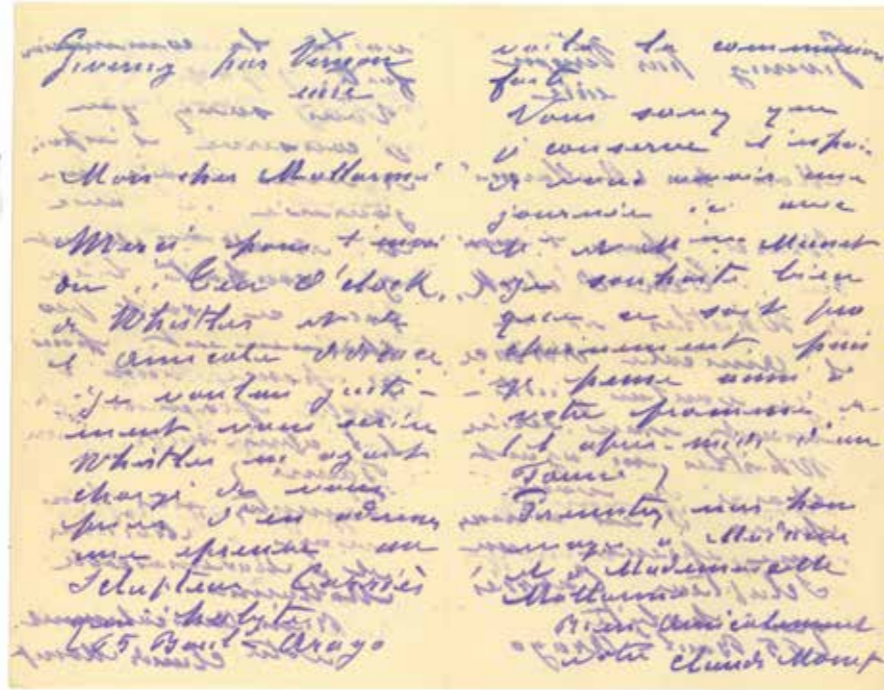 Giverny par Vernon
Eure
Mon cher Mallarmé
Merci pour l'envoi
du Ten O'clock,
de Whistler et de
l'amicale dédicace
je voulais juste-
ment vous écrire
Whistler m'ayant
chargé de vous
prier d'en adresser
une épreuve au
Sculpteur Carriès
qui habite
65 Boul. Arago
voilà la commission
faite
Vous savez que
je conserve l'espoir
de vous avoir une
journée ici avec
Monet
je souhaite bien
que ce soit pro
chainement puis
je pense aussi à
votre promesse de
l'après-midi d'un
Faune
Présentez mes hom
mages à Madame
et à Mademoiselle
Mallarmé
Bien amicalement
votre Claude Monet